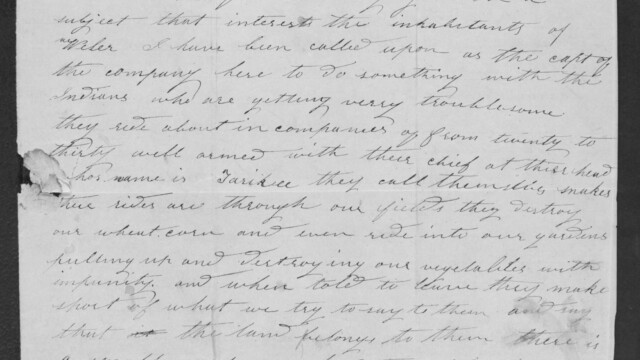 subject that interests the inhabitants of
Weber I have been called upon as the capt of
the company here to do something with the
Indians who are getting verry troublesome
they ride about in companies of from twenty to
thirty well armed with their chief at their head
hos name is they call themselvs snakes
thee rides are through our fields they destroy
our wheat. corn and even ride into our gardens
pulling up and destroying our vegetables with
impunity. and when told to leave they make
sport of what we try to say to them and say
that the land belongs to them there is